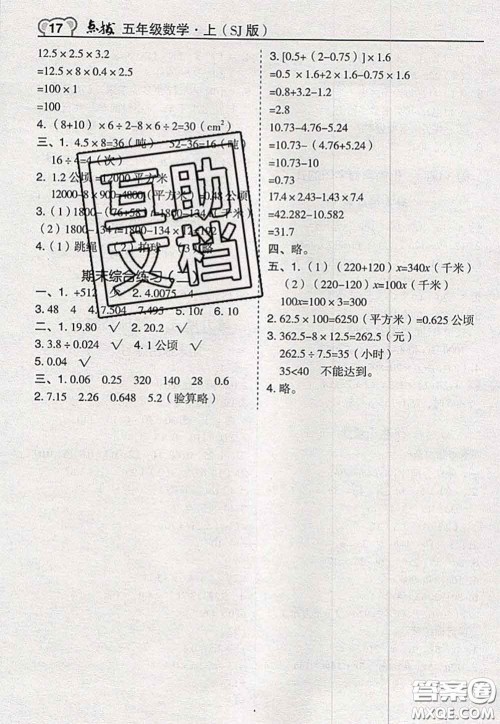 17 点拨 五年级数学·上（SJ版）
12.5×2.5×3.2
=12.5×8×2.5×0.4
=100×1
=100
4.（8+10）×6÷2-8×6÷2=30（cm²）
三、1. 4.5×8=36（吨） 52-36=16（吨）
16÷4=4（次）
2. 1.2公顷=12000平方米
12000-8×900=4800（平方米）=0.48公顷
3.（1）1800-（76+58）=1800-134
（2）1800-134
4.（1）跳绳
期末综合练习
一、1. +512 2. 4.0075 4.
3. 48 4 4. 7.504 7.495 5. 10 6. 10
二、1. 19.80 √ 2. 20.2 √
3. 3.8÷0.024 √ 4. 1公顷 √
5. 0.04 √
三、1. 0.06 0.25 320 140 28 0.6
2. 7.15 2.6 0.648 5.2（验算略）
3. [0.5+（2-0.75）]×1.6
=0.5×1.6+2×1.6-0.75×1.6
=0.8+3.2-1.2
=2.8
10.73-4.76-5.24
=10.73-（4.76+5.24）
=10.73-10
=0.73
17.4×2.43-1.43×7.4
=42.282-10.582
=31.7
四、略。
五、1.（1）（220+120）x=340x（千米）
（2）（220-120）x=100x（千米）
100x=100×3=300
2. 62.5×100=6250（平方米）=0.625公顷
3. 362.5-8×12.5=262.5（元）
262.5÷7.5=35（小时）
35<40 不能达到。
4. 略。
互助文档
答案圈
MXQE.COM